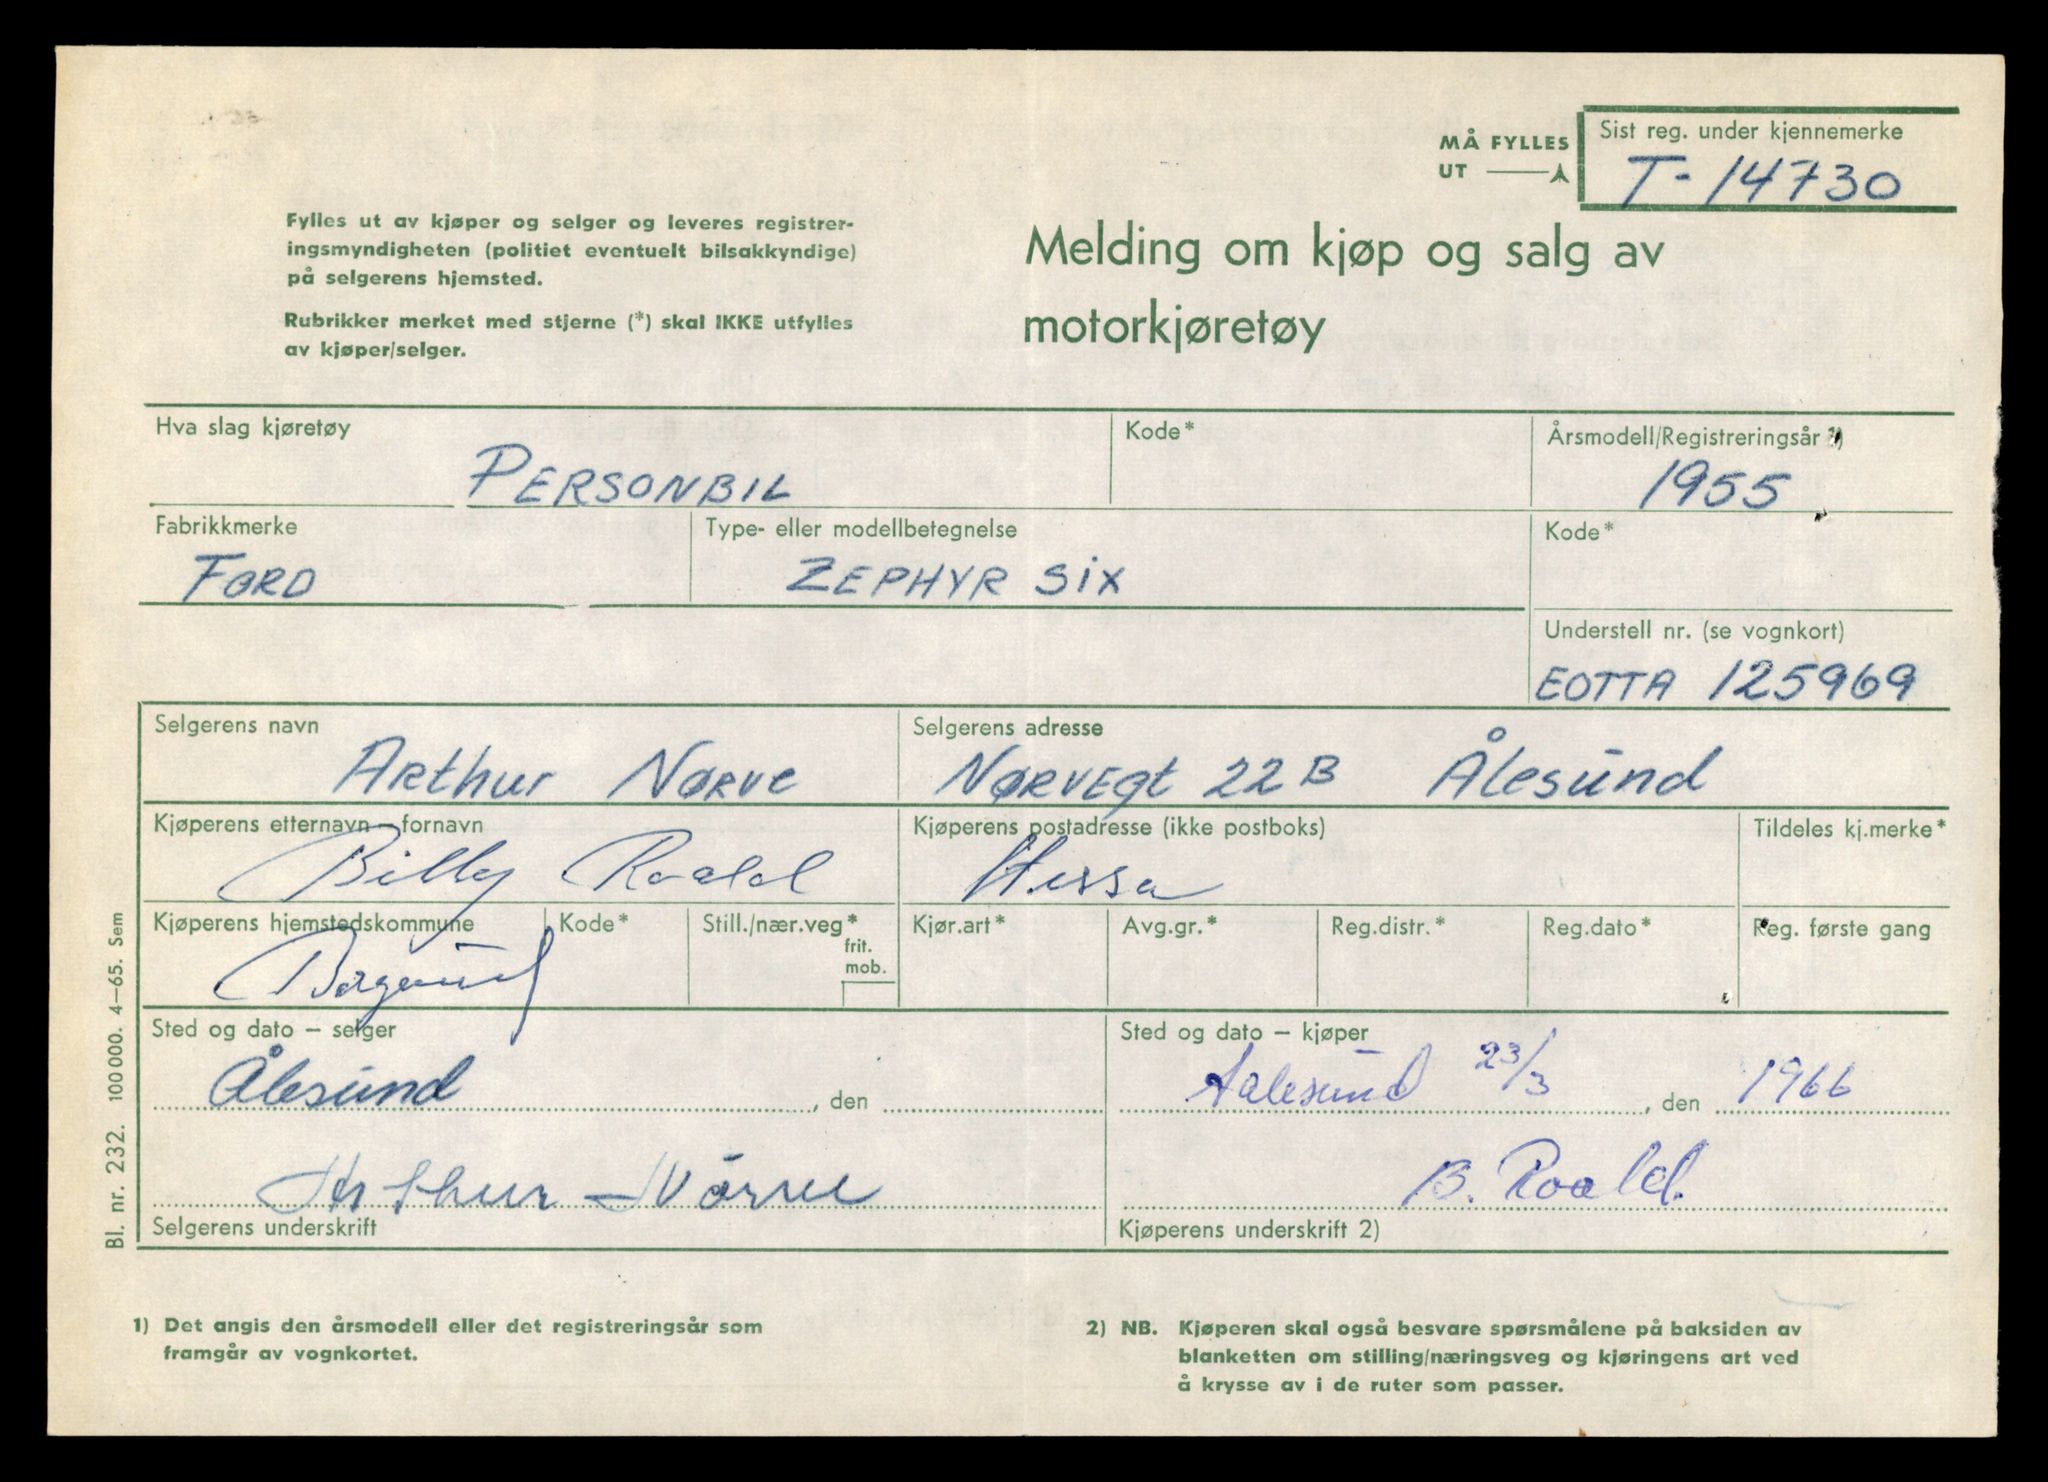 MÅ FYLLES UT
Sist reg. under kjennemerke
T-14730
Fylles ut av kjøper og selger og leveres registrer-
ingsmyndigheten (politiet eventuelt bilsakkyndige)
på selgerens hjemsted.
Rubrikker merket med stjerne (*) skal IKKE utfylles
av kjøper/selger.
Melding om kjøp og salg av
motorkjøretøy
Hva slag kjøretøy
PERSONBIL
Kode*
Årsmodell/Registreringsår 1)
1955
Fabrikkmerke
FORD
Type- eller modellbetegnelse
ZEPHYR SIX
Kode*
Understell nr. (se vognkort)
EOTTA 125969
Selgerens navn
Arthur Nørve
Selgerens adresse
NØRVEgt 22 B Ålesund
Kjøperens etternavn – fornavn
Billy Roald
Kjøperens postadresse (ikke postboks)
Hessa
Tildeles kj.merke*
Kjøperens hjemstedskommune
Borgund
Kode*
Still./nær.veg*
frit.
mob.
Kjør.art*
Avg.gr.*
Reg.distr.*
Reg.dato*
Reg. første gang
Sted og dato – selger
Ålesund , den
Sted og dato – kjøper
Aalesund 23/3 , den 1966
Arthur Nörve
Selgerens underskrift
B. Roald.
Kjøperens underskrift 2)
Bl. nr. 232. 100 000. 4–65. Sem
1) Det angis den årsmodell eller det registreringsår som
framgår av vognkortet.
2) NB. Kjøperen skal også besvare spørsmålene på baksiden av
blanketten om stilling/næringsveg og kjøringens art ved
å krysse av i de ruter som passer.